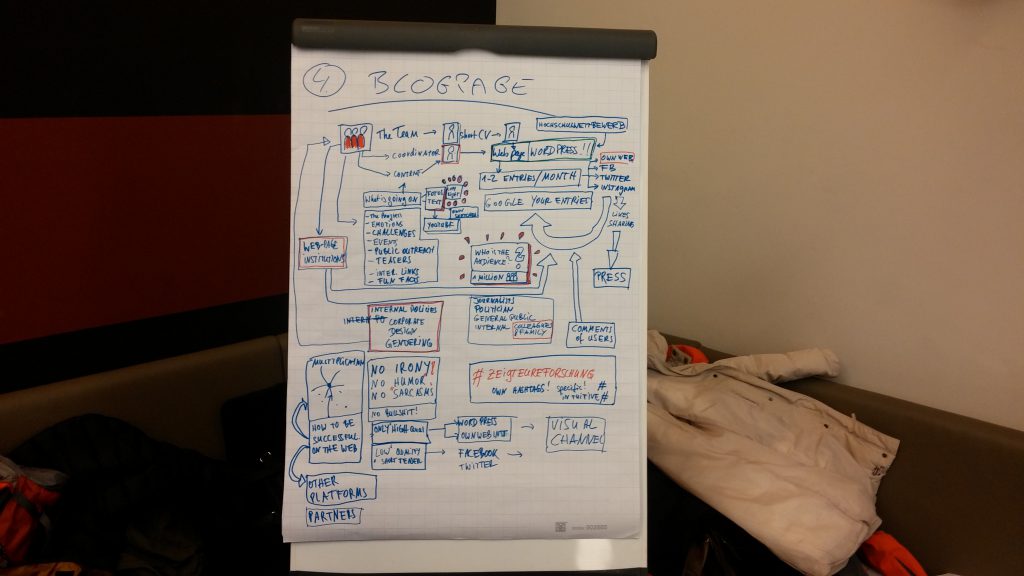 4 BLOGPAGE
HOCHSCHULWETTBEWERB
The Team
short CV
COORDINATOR
CONTENT
Web Page WORDPRESS !!!
OWN WEB
FB
TWITTER
INSTAGRAM
1-2 ENTRIES/MONTH
GOOGLE YOUR ENTRIES
LIKES
SHARING
PRESS
What is going on
FOTOS
TEXT
YOUTUBE
OWN
- The Progress
- EMOTIONS
- CHALLENGES
- EVENTS
- PUBLIC OUTREACH
- TEASERS
- INTER. LINKS
- FUN FACTS
WEB-PAGE
INSTITUTIONS
WHO IS THE
AUDIENCE?
A MILLION
JOURNALISTS
POLITICIAN
GENERAL PUBLIC
INTERNAL COLLEAGUES
& FAMILY
COMMENTS
OF USERS
INTERNAL POLICIES
CORPORATE
DESIGN
GENDERING
MULTIPLICATION
HOW TO BE
SUCCESSFUL
ON THE WEB
OTHER
PLATFORMS
PARTNERS
NO IRONY!
NO HUMOR!
NO SARCASMS
NO BULLSHIT!
# ZEIGTEUREFORSCHUNG
OWN HASHTAGS! specific! #
INTUITIVE #
ONLY HIGH QUALI
WORDPRESS
OWN WEB
VISUAL
CHANNEL
LOW QUALITY
SHORT TEASER
FACEBOOK
TWITTER